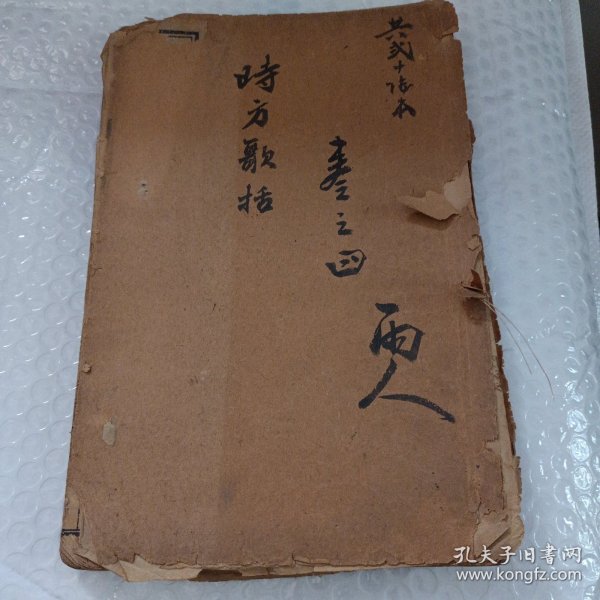 共弍十陆本
壹之四
兩人
時方歌括
孔夫子旧书网
www.kongfz.com